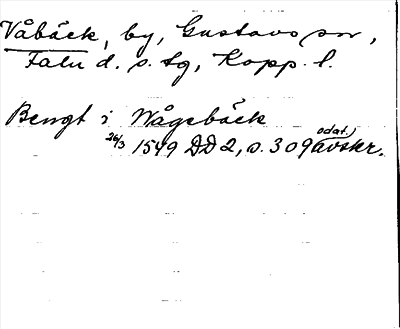 Våbäck, by, Gustavs sn,
Falu d. s. tg, Kopp. l.
Bengt i Wågebäck
26/3 1549 DD 2, s. 309 odat. avskr.